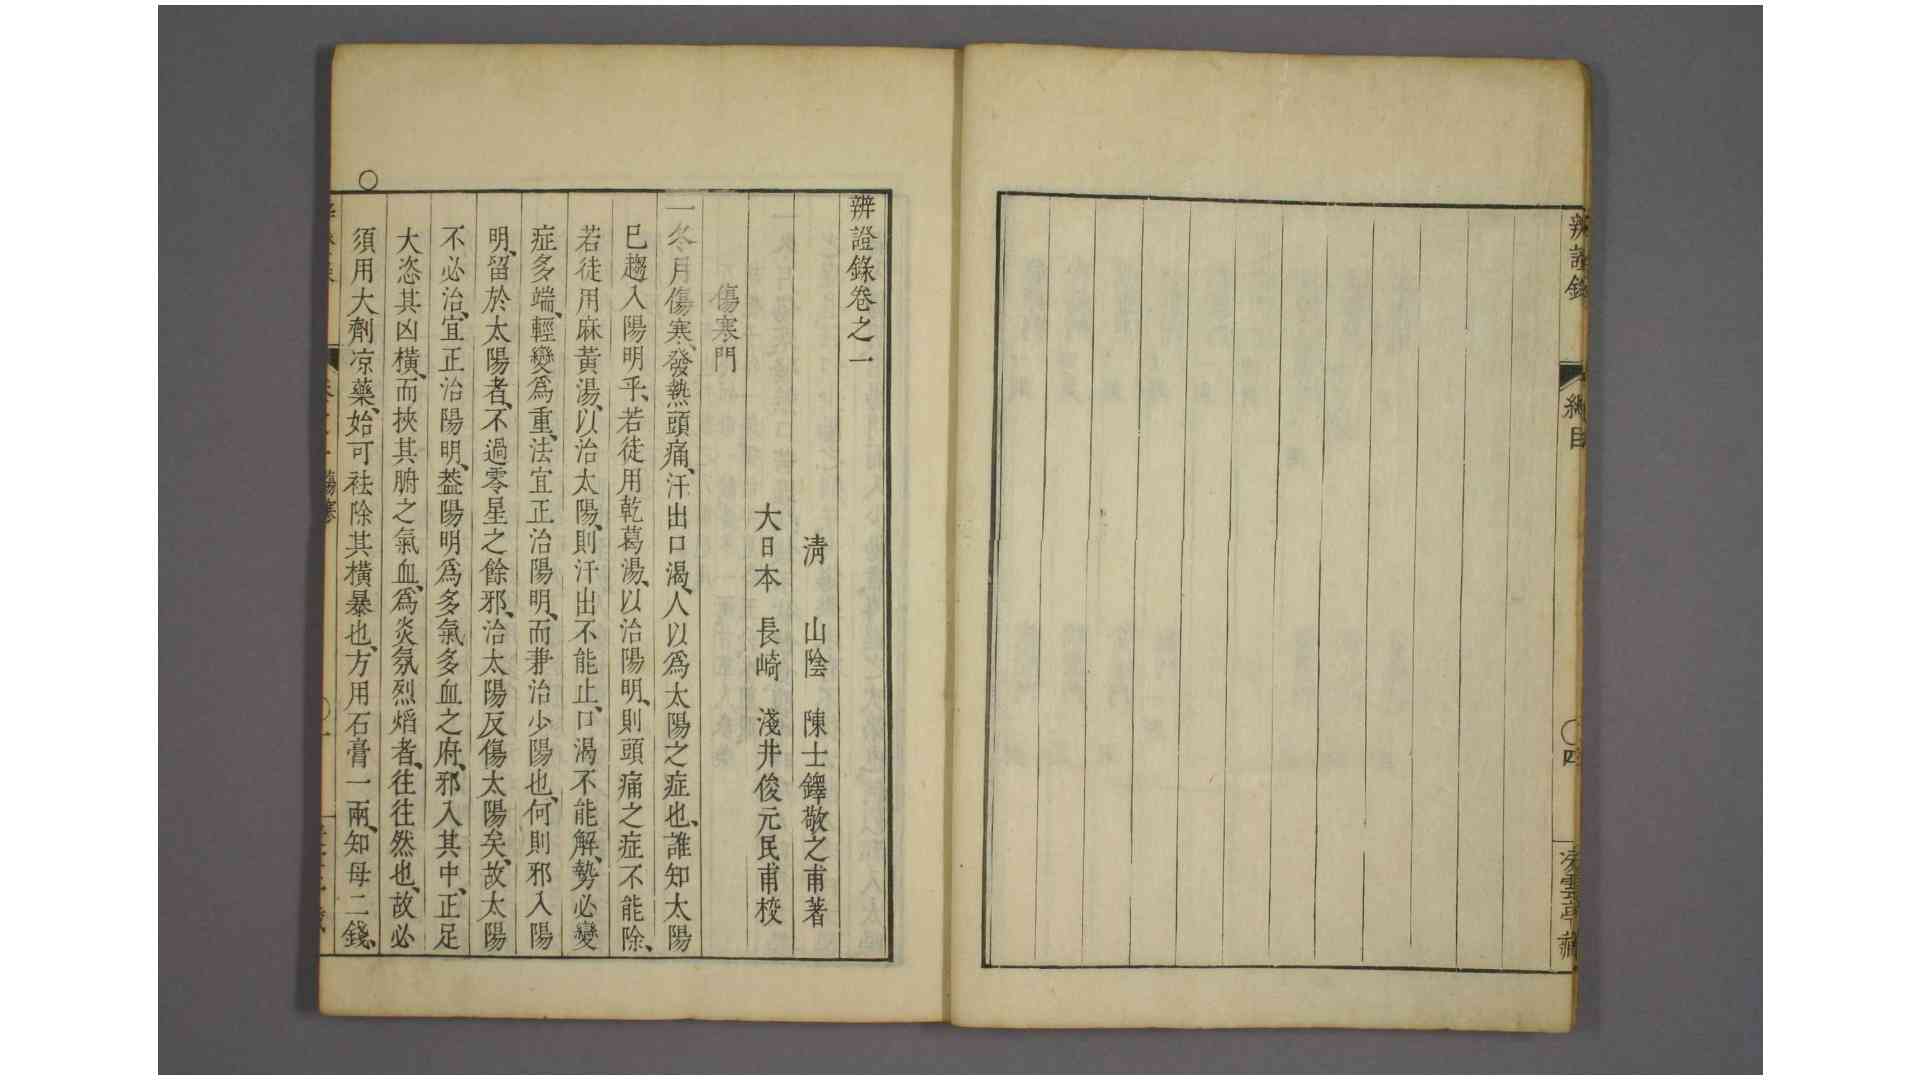 辨證錄
總目
四
凌雲亭藏
辨證錄卷之一
清 山陰 陳士鐸敬之甫著
大日本 長崎 淺井俊元民甫校
傷寒門
一冬月傷寒、發熱頭痛、汗出口渴、人以爲太陽之症也、誰知太陽
已趨入陽明乎、若徒用乾葛湯、以治陽明、則頭痛之症不能除、
若徒用麻黃湯、以治太陽、則汗出不能止、口渴不能解、勢必變
症多端、輕變爲重、法宜正治陽明、而兼治少陽也、何則邪入陽
明、留於太陽者、不過零星之餘邪、治太陽反傷太陽矣、故太陽
不必治、宜正治陽明、葢陽明爲多氣多血之府、邪入其中、正足
大恣其凶橫、而挾其腑之氣血、爲炎氛烈熖者、往往然也、故必
須用大劑凉藥、始可袪除其橫暴也、方用石膏一兩、知母二錢、